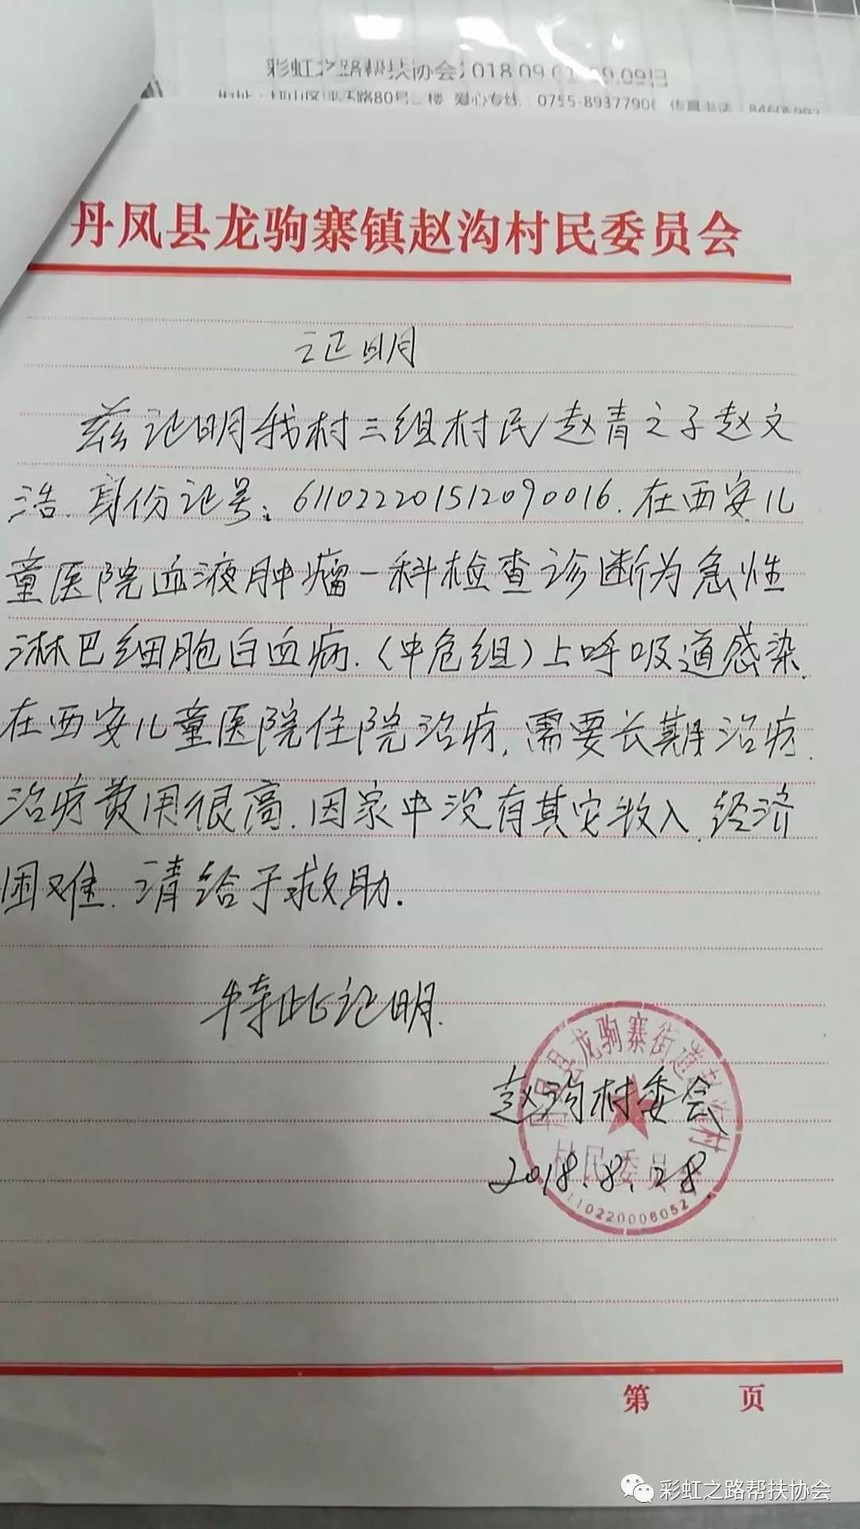 彩虹之路帮扶协会
路80号
爱心专线 0755-8937790
丹凤县龙驹寨镇赵沟村民委员会
证明
兹证明我村三组村民赵青之子赵文
浩.身份证号:611022201512090016.在西安儿
童医院血液肿瘤一科检查诊断为急性
淋巴细胞白血病.(中危组)上呼吸道感染.
在西安儿童医院住院治疗,需要长期治疗.
治疗费用很高.因家中没有其它收入.经济
困难.请给于救助.
特此证明.
丹凤县龙驹寨街道赵沟村
赵沟村委会
村民委员会
2018.8.28
110220006052
第 页
彩虹之路帮扶协会